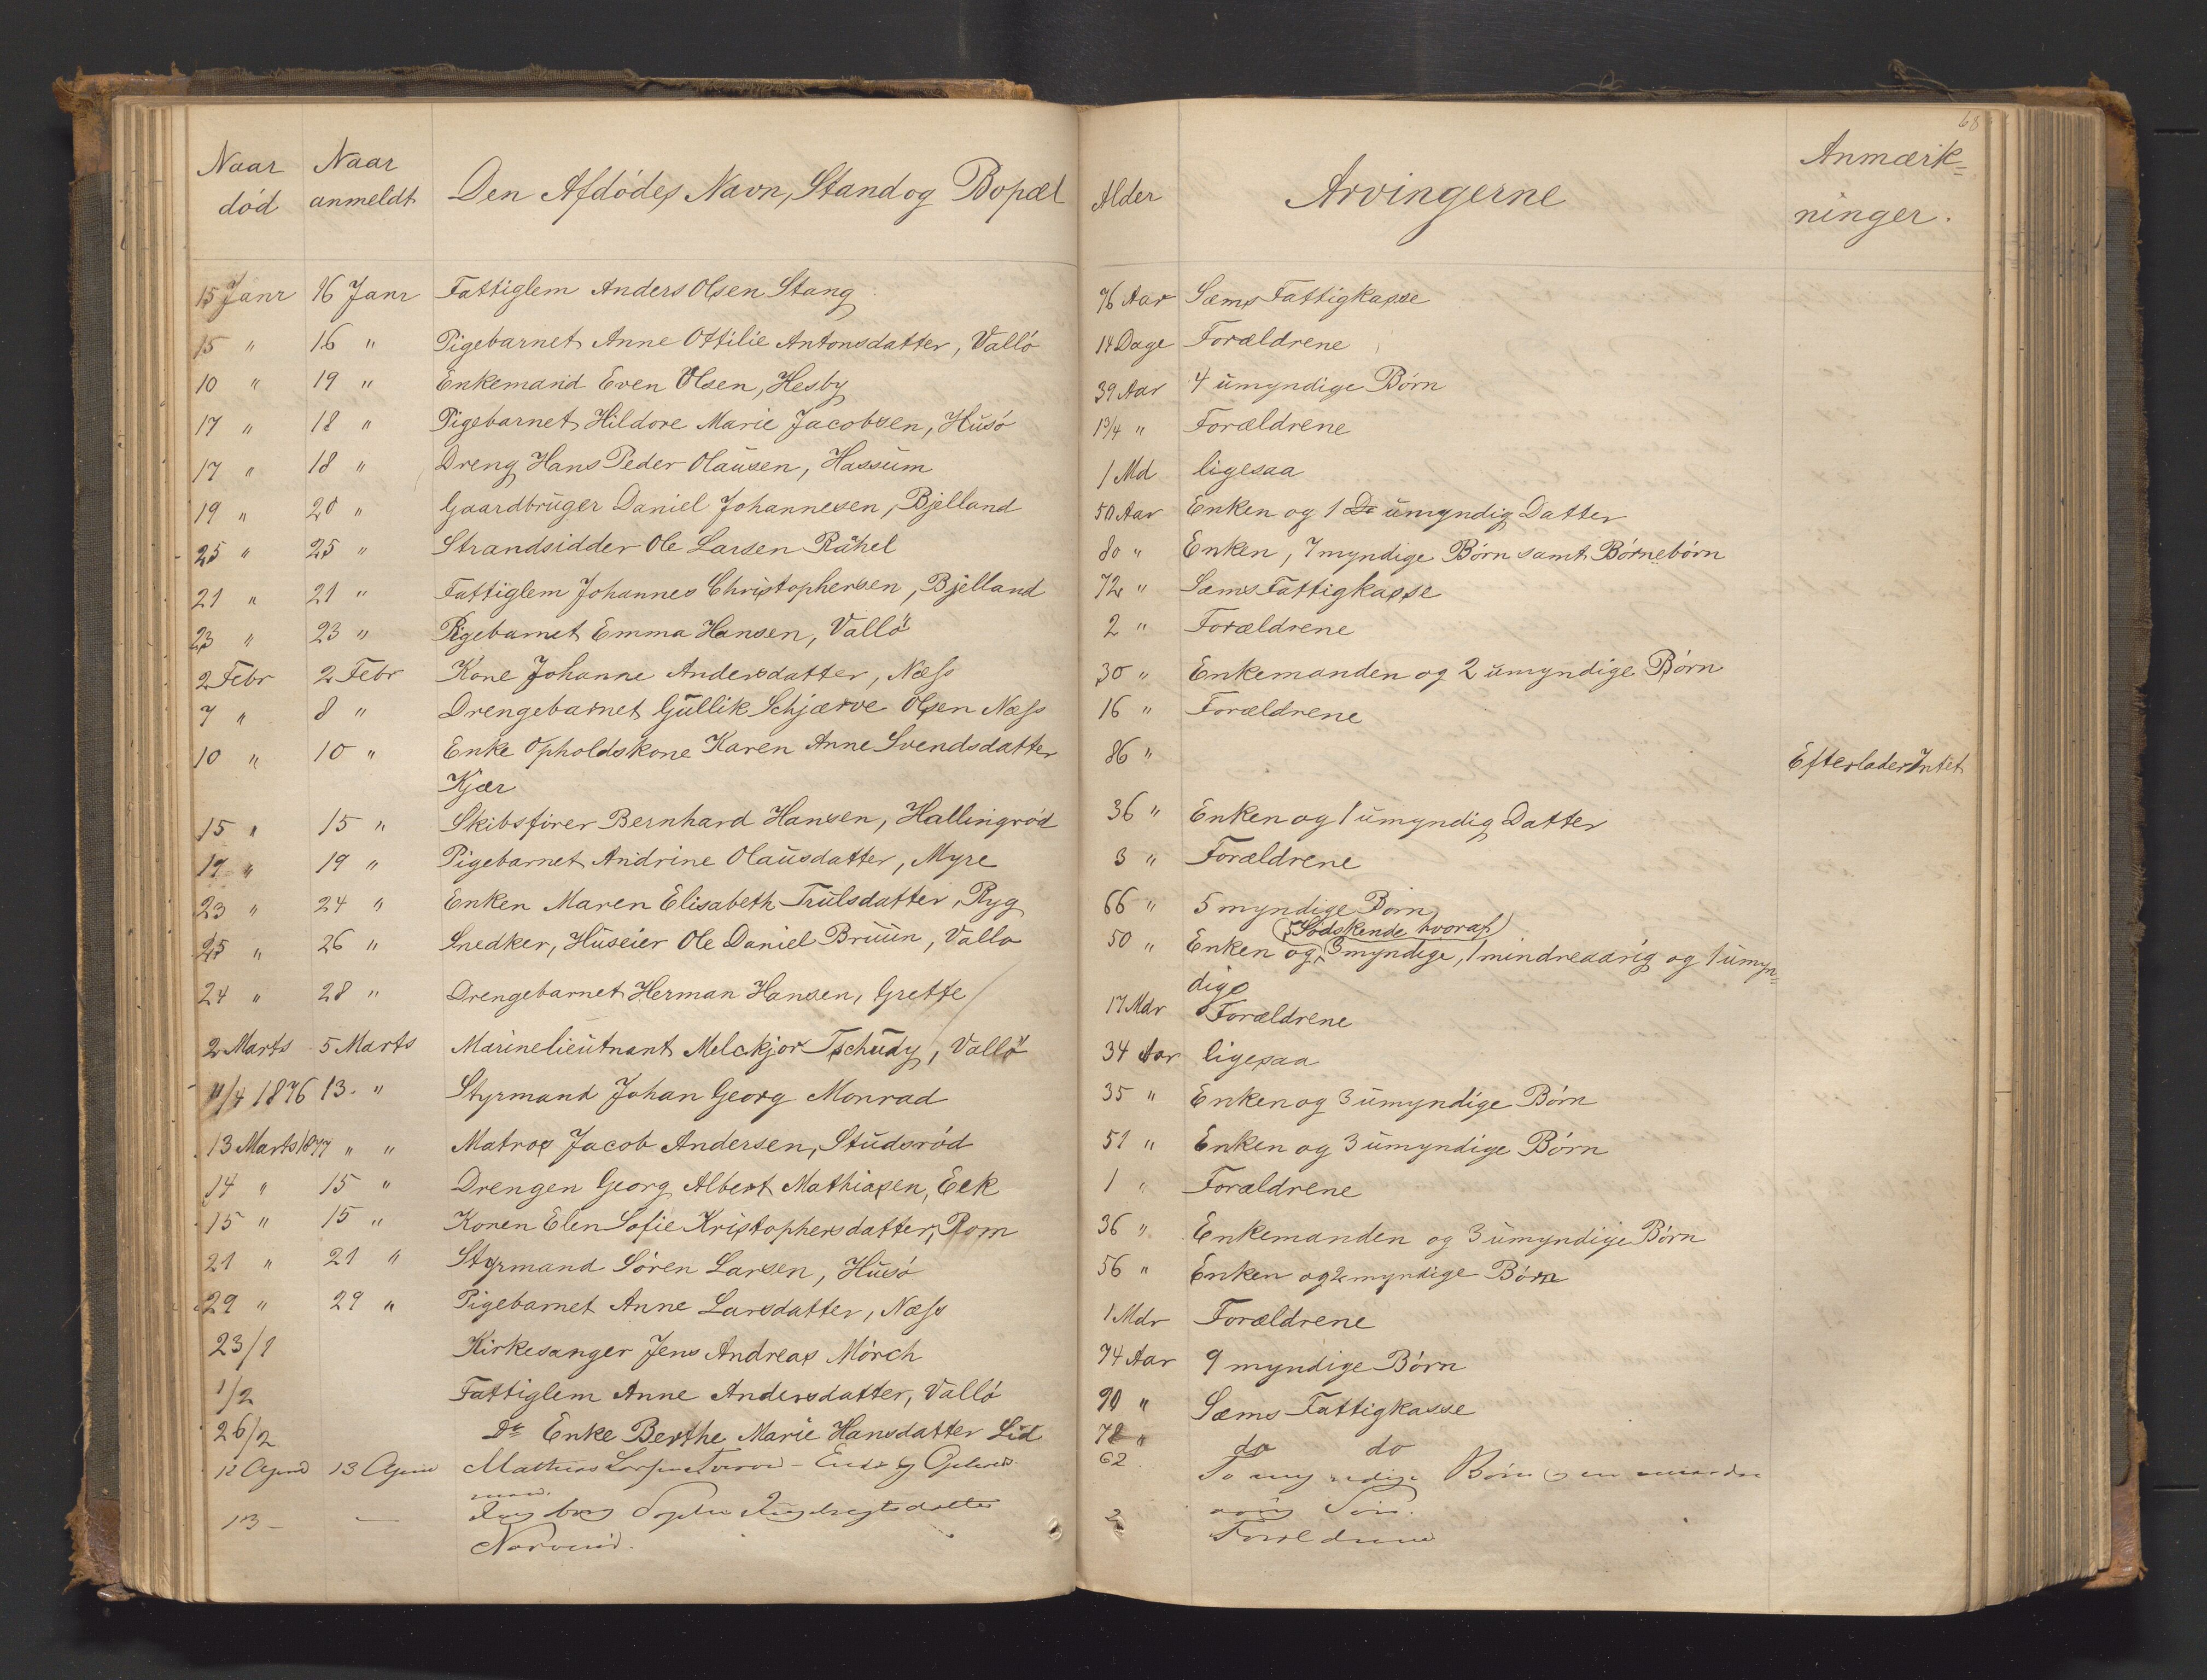 68
Naar død Naar anmeldt Den Afdødes Navn, Stand og Bopæl Alder Arvingerne Anmærk=
ninger.
15 Janr 16 Janr Fattiglem Anders Olsen Stang 76 Aar Sæms Fattigkasse
15 " 16 " Pigebarnet Anne Ottilie Antonsdatter, Vallö 14 Dage Forældrene
10 " 19 " Enkemand Even Olsen, Hesby 39 Aar 4 umyndige Børn
17 " 18 " Pigebarnet Hildore Marie Jacobsen, Husö 1 3/4 " Forældrene
17 " 18 " Dreng Hans Peder Olausen, Hassum 1 Md ligesaa
19 " 20 " Gaardbruger Daniel Johannesen, Bjelland 50 Aar Enken og 1 umyndig Datter
25 " 25 " Strandsidder Ole Larsen Råhel 80 " Enken, 7 myndige Børn samt Børnebørn
21 " 21 " Fattiglem Johannes Christophersen, Bjelland 72 " Sæms Fattigkasse
23 " 23 " Pigebarnet Emma Hansen, Vallö 2 " Forældrene
2 Febr 2 Febr Kone Johanne Andersdatter, Næss 30 " Enkemanden og 2 umyndige Børn
7 " 8 " Drengebarnet Gullik Schjærve Olsen Næss 16 " Forældrene
10 " 10 " Enke Opholdskone Karen Anne Svendsdatter 86 " Efterlader Intet
Kjær
15 " 15 " Skibsfører Bernhard Hansen, Hallingrød 36 " Enken og 1 umyndig Datter
17 " 19 " Pigebarnet Andrine Olausdatter, Myre 3 " Forældrene
23 " 24 " Enken Maren Elisabeth Trulsdatter, Ryg 66 " 5 myndige Børn
5 Sødskende hvoraf
25 " 26 " Snedker, Huseier Ole Daniel Bruun, Vallø 50 " Enken og 3 myndige, 1 mindreaarig og 1 umyn=
dige
24 " 28 " Drengebarnet Herman Hansen, Grette 17 Mdr Forældrene
2 Marts 5 Marts Marinelieutnant Melckjor Tschudy, Vallö 34 Aar ligesaa
11/4 1876 13. " Styrmand Johan Georg Monrad 35 " Enken og 3 umyndige Børn
13 Marts 1877 " " Matros Jacob Andersen, Studsrød 51 " Enken og 3 umyndige Børn
14 " 15 " Drengen Georg Albert Mathiasen, Eek 1 " Forældrene
15 " 15 " Konen Elen Sofie Kristophersdatter, Rom 36 " Enkemanden og 3 umyndige Børn
21 " 21 " Styrmand Søren Larsen, Husø 56 " Enken og 2 myndige Børn
29 " 29 " Pigebarnet Anne Larsdatter, Næss 1 Mdr Forældrene
23/1 Kirkesanger Jens Andreas Mörch 74 Aar 9 myndige Børn
1/2 Fattiglem Anne Andersdatter, Vallö 90 " Sæms Fattigkasse
26/2 Do Enke Berthe Marie Hansdatter Lid 78 " do do
12 April 13 April Mathias 62 To myndige Børn og en
Søn.
13 - — 2 Forældrene